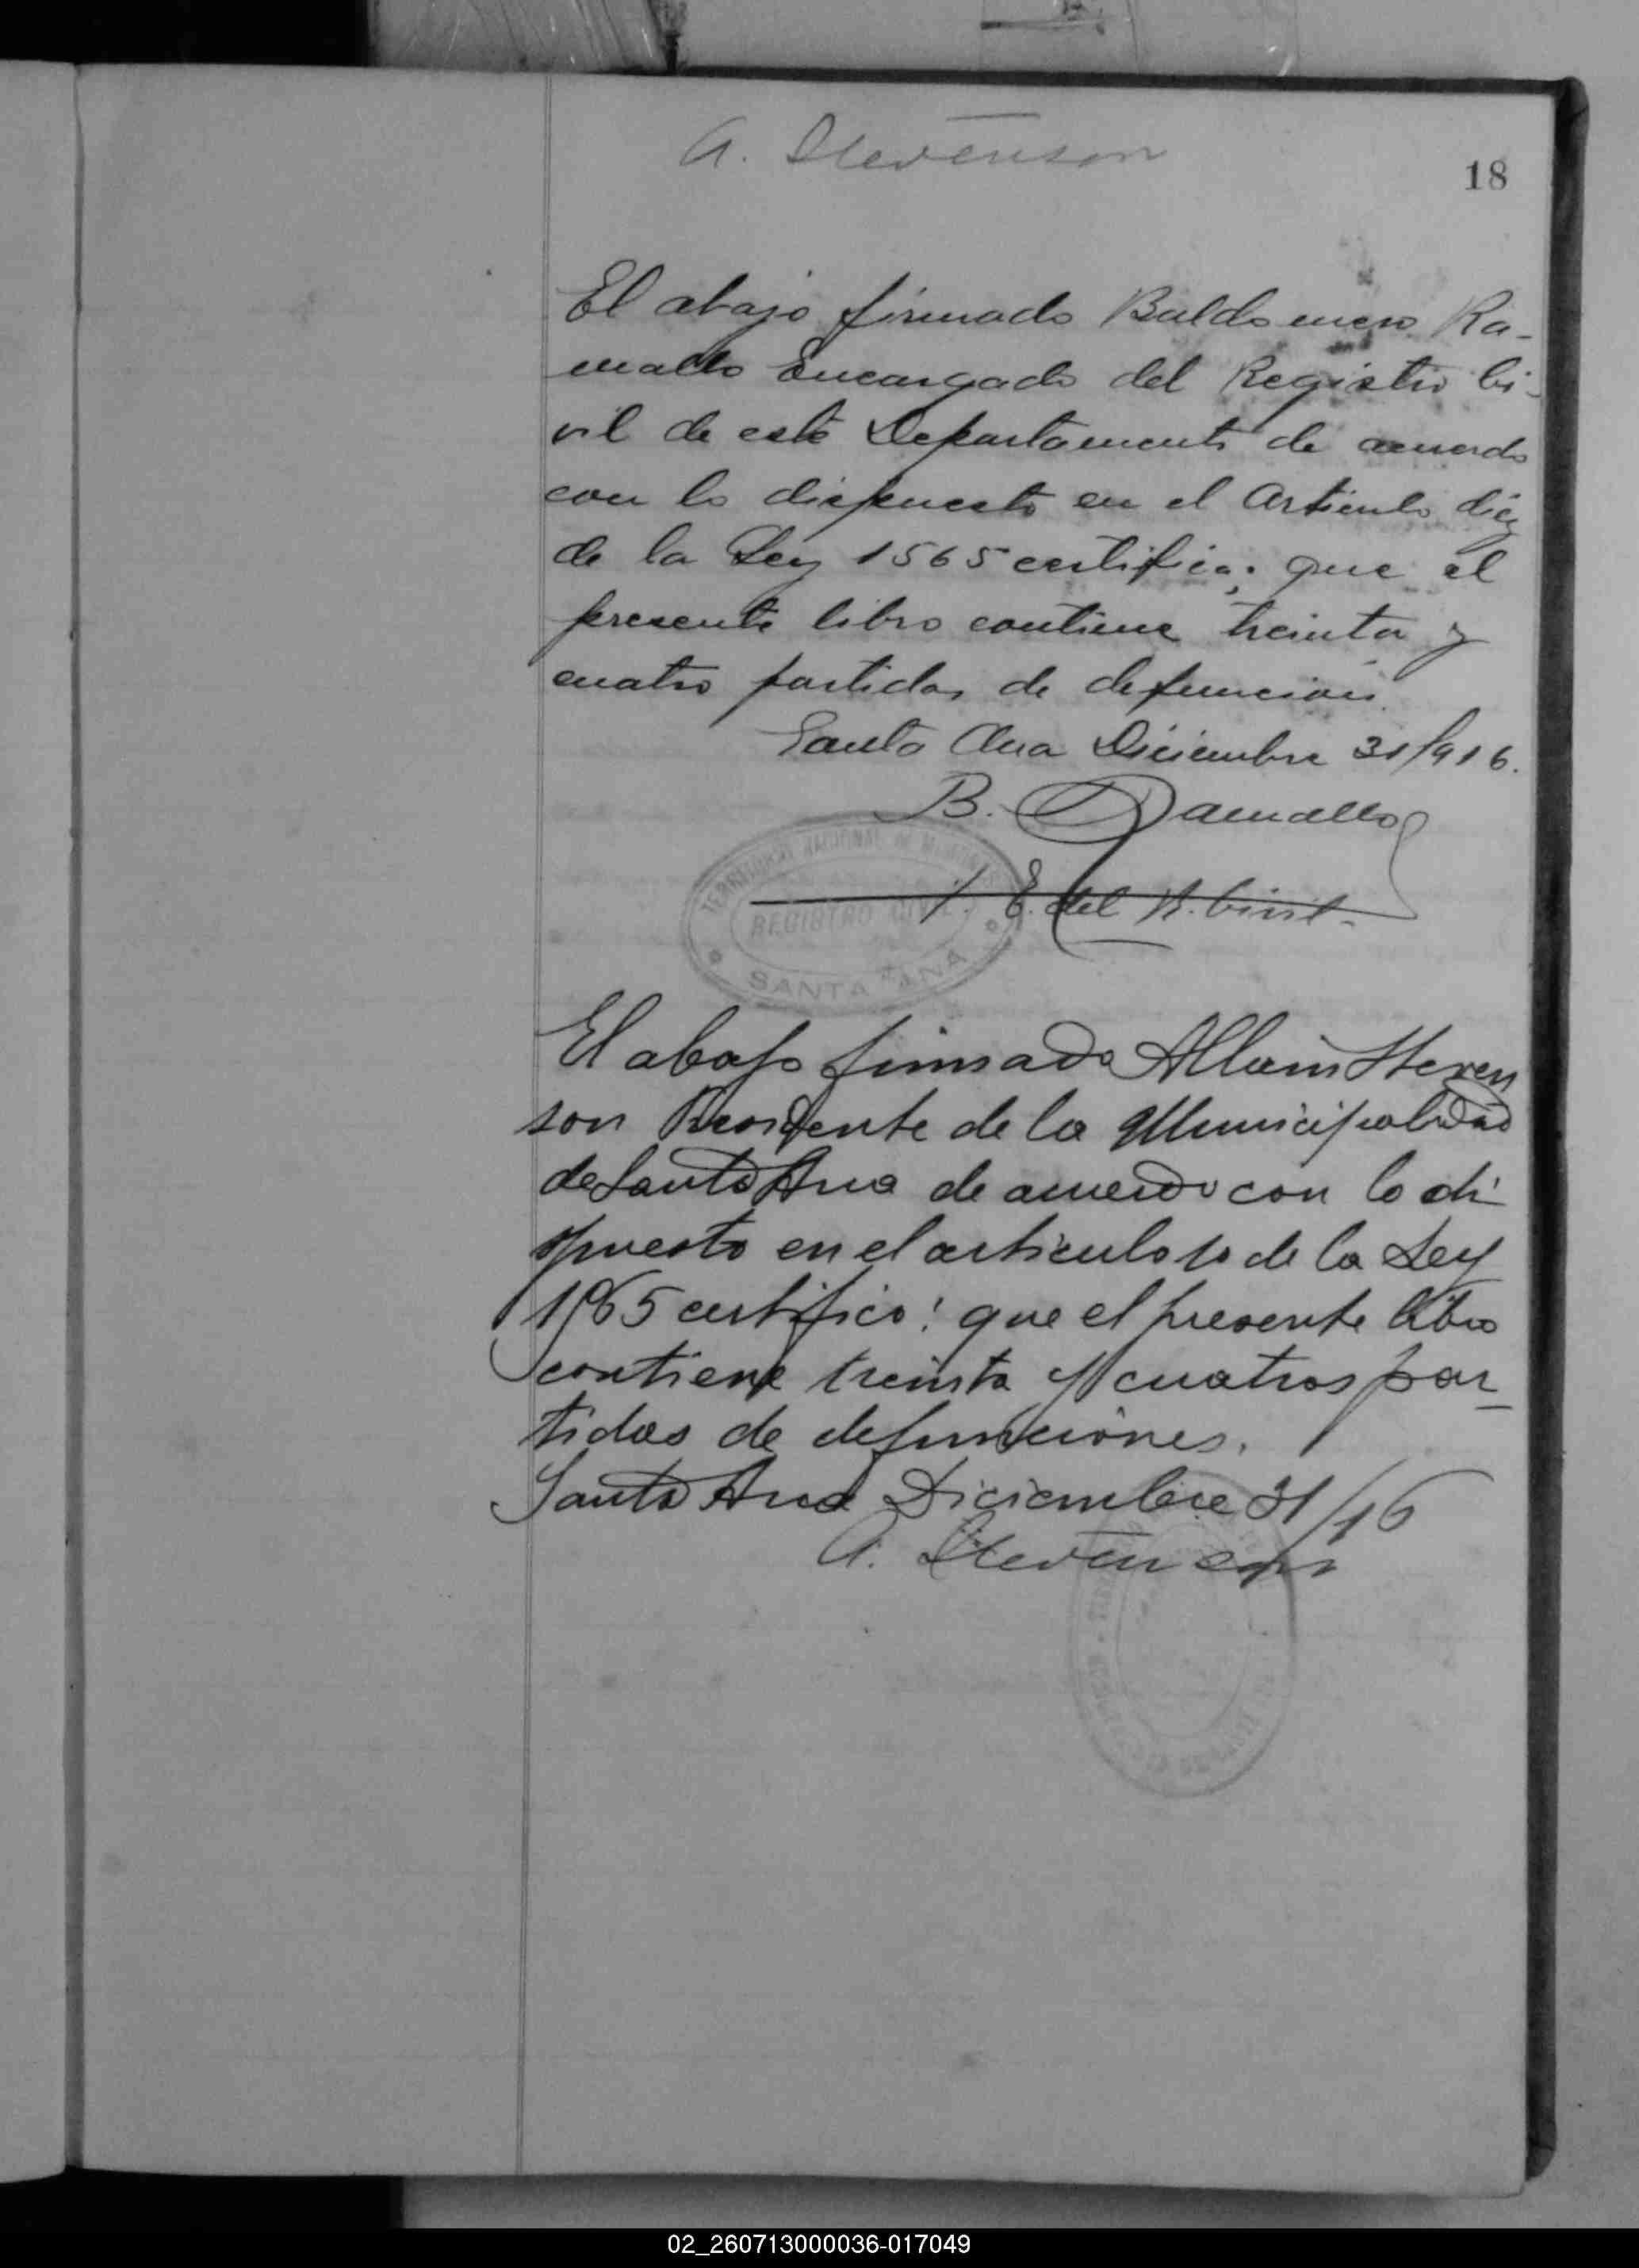 A. Stevenson
18
El abajo firmado Baldomero Ra-
mallo Encargado del Registro Ci-
vil de este Departamento de acuerdo
con lo dispuesto en el Articulo diez
de la Ley 1565 certifica; que el
presente libro contiene treinta y
cuatro partidas de defuncion.
Santa Ana Diciembre 31/916.
B. Ramallo
E. del R. Civil-
TERRITORIO NACIONAL DE MISIONES
REGISTRO CIVIL
SANTA ANA
El abajo firmado Allain Steven
son Presidente de la Municipalidad
de Santa Ana de acuerdo con lo di
spuesto en el articulo 10 de la Ley
1565 certifico: que el presente libro
contiene treinta y cuatros par-
tidas de defunciones.
Santa Ana Diciembre 31/16
A. Stevenson
02_260713000036-017049